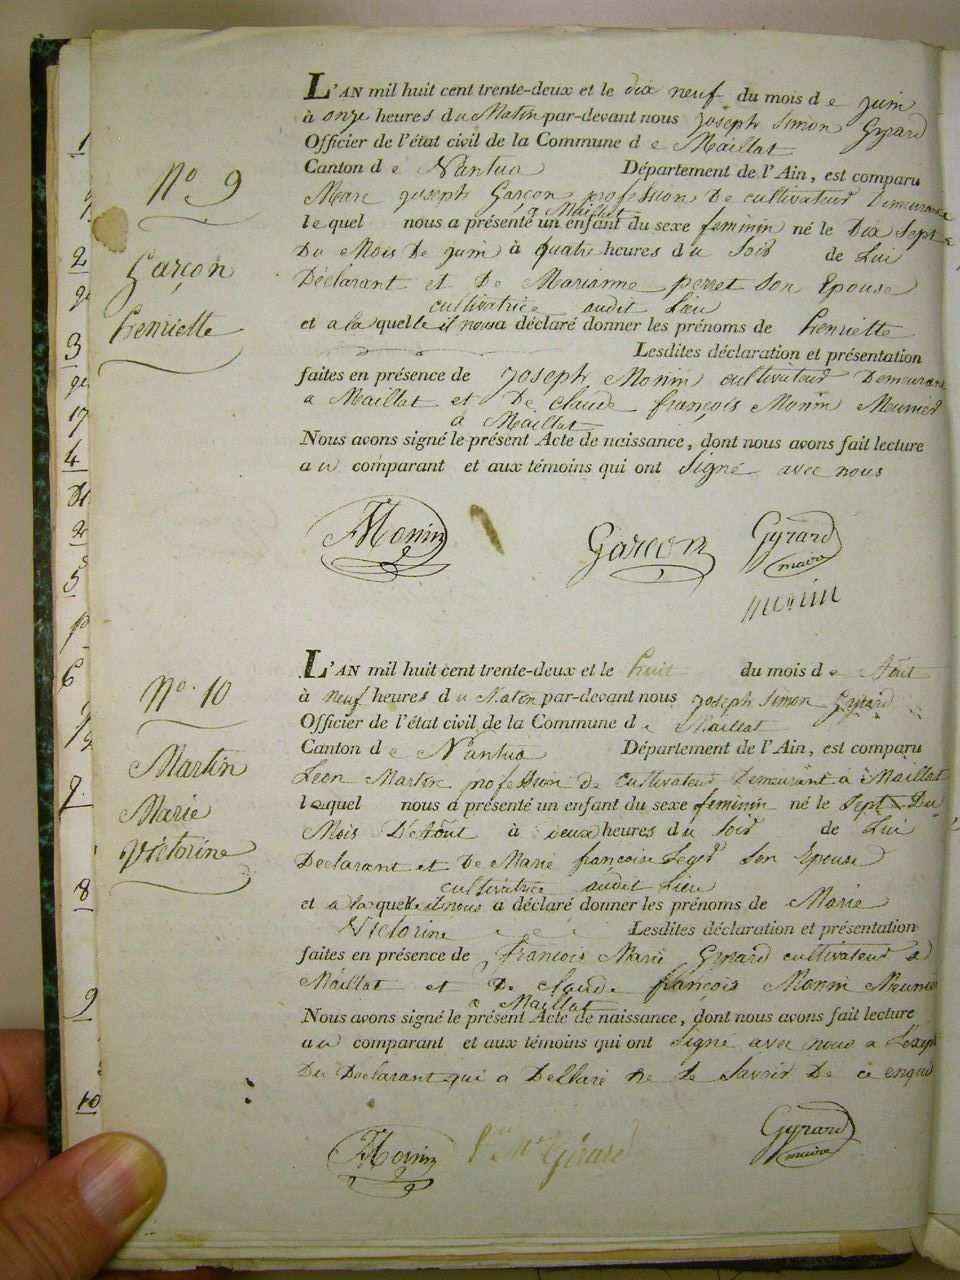 No 9
Garçon
henriette
L'AN mil huit cent trente-deux et le dix neuf du mois d e juin
à onze heures du Matin par-devant nous joseph Simon Gyrard
Officier de l'état civil de la Commune d e Maillat
Canton d e Nantua Département de l'Ain, est comparu
Marc joseph Garçon profession De cultivateur Demeurant
a Maillat
lequel nous a présenté un enfant du sexe feminin né le Dix Sept
Du Mois De juin à quatre heures du Soir de Lui
Déclarant et De Marianne perret Son Epouse
cultivatrice audit Lieu
et a laquelle il nous a déclaré donner les prénoms de henriette
Lesdites déclaration et présentation
faites en présence de joseph Monin cultivateur Demeurant
a Maillat et De claude françois Monin Meunier
a Maillat
Nous avons signé le présent Acte de naissance, dont nous avons fait lecture
au comparant et aux témoins qui ont Signé avec nous
Monin
Garcon
Gyrard
maire
monin
No. 10
Martin
Marie
Victorine
L'AN mil huit cent trente-deux et le huit du mois d e Août
à neuf heures du Matin par-devant nous joseph Simon Gyrard
Officier de l'état civil de la Commune d e Maillat
Canton d e Nantua Département de l'Ain, est comparu
Leon Martin profession De cultivateur Demeurant a Maillat
lequel nous a présenté un enfant du sexe feminin né le Sept Du
Mois D'Août à deux heures du Soir de Lui
Déclarant et De Marie françoise Leger Son Epouse
cultivatrice audit Lieu
et a laquelle il nous a déclaré donner les prénoms de Marie
Victorine Lesdites déclaration et présentation
faites en présence de francois Marie Gyrard cultivateur a
Maillat et De claude françois Monin Meunier
a Maillat
Nous avons signé le présent Acte de naissance, dont nous avons fait lecture
au comparant et aux témoins qui ont Signé avec nous a
Du Declarant qui a Declaré ne le Savoir De ce enquis
Monin
Girard
Gyrard
maire
1
2
3
4
5
6
7
8
9
10